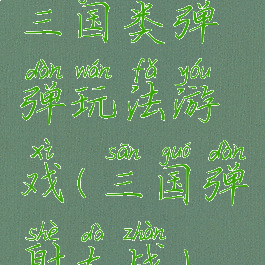 三国类弹
dàn wán fǎ yóu
弹玩法游
xì sān guó dàn
戏(三国弹
shè dà zhàn
射大战)